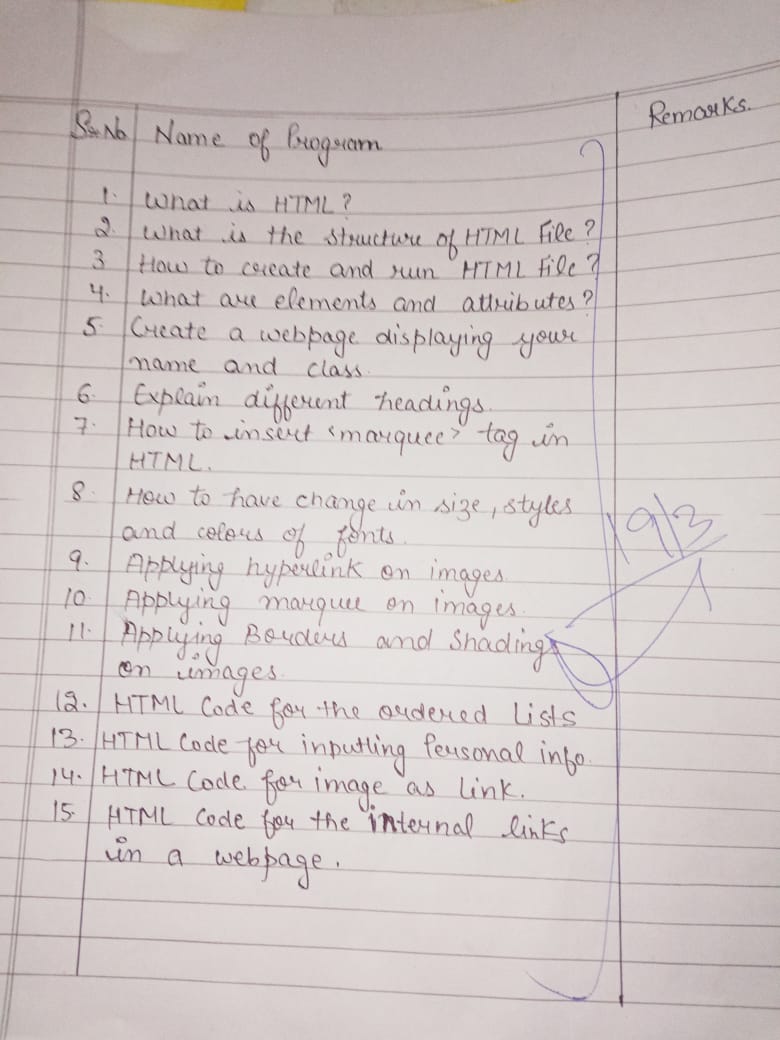 Sr. No Name of Program Remarks.
1. What is HTML?
2. What is the structure of HTML File?
3 How to create and run HTML File?
4. What are elements and attributes?
5. Create a webpage displaying your
name and class.
6. Explain different headings.
7. How to insert <marquee> tag in
HTML.
8. How to have change in size, styles
and colours of fonts.
9. Applying hyperlink on images.
10 Applying marquee on images.
11. Applying Borders and Shading
on images.
12. HTML Code for the ordered Lists
13. HTML Code for inputting Personal info.
14. HTML Code for image as link.
15 HTML Code for the internal links
in a webpage.
19/3